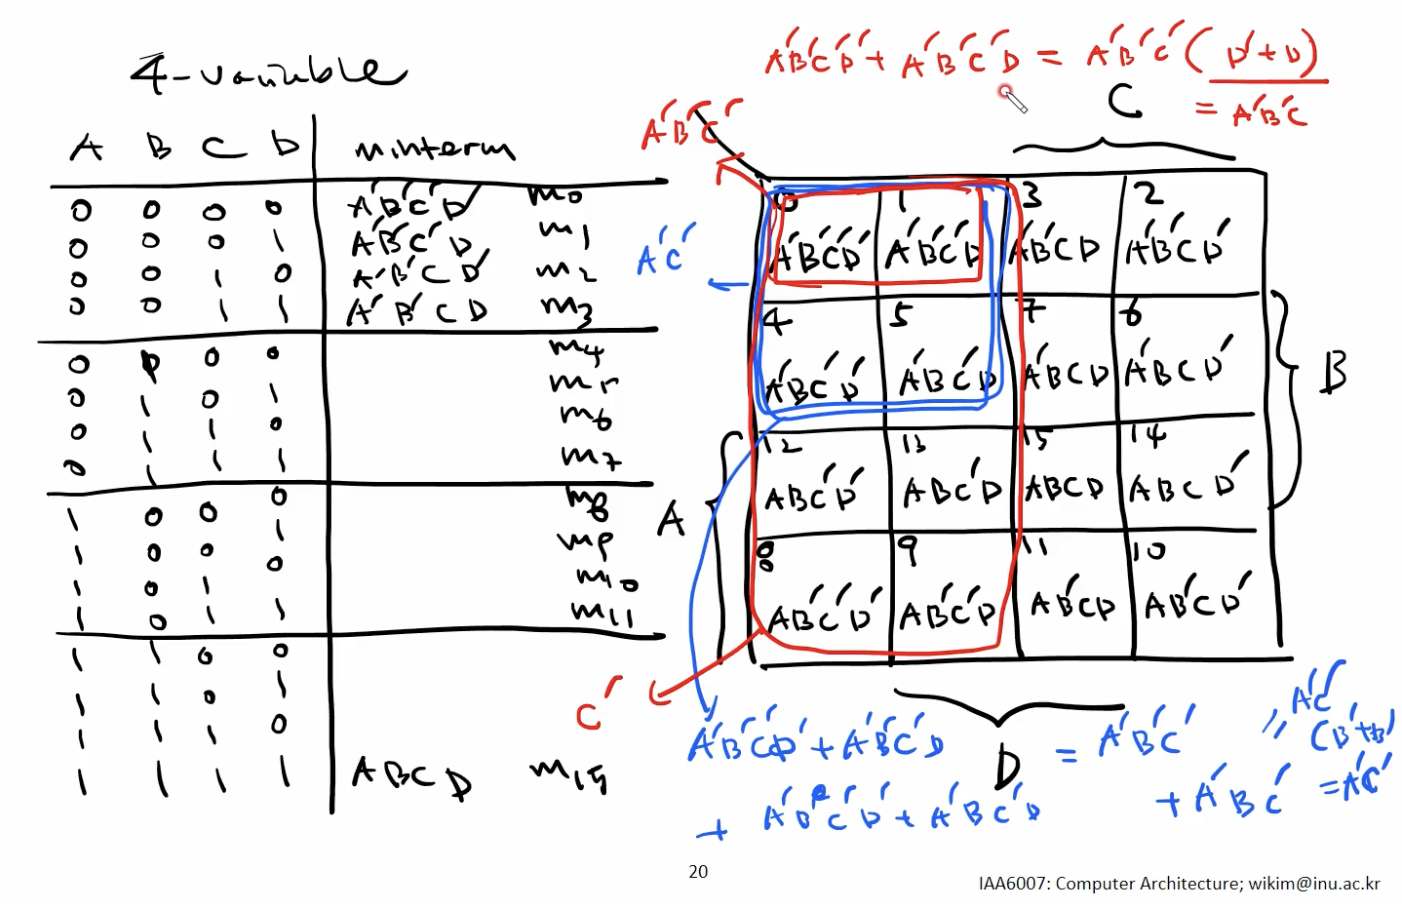 4-variable
A B C D minterm
0 0 0 0 A'B'C'D' m0
0 0 0 1 A'B'C'D m1
0 0 1 0 A'B'CD' m2
0 0 1 1 A'B'CD m3
0 1 0 0 m4
0 1 0 1 m5
0 1 1 0 m6
0 1 1 1 m7
1 0 0 0 m8
1 0 0 1 m9
1 0 1 0 m10
1 0 1 1 m11
1 1 0 0
1 1 0 1
1 1 1 0
1 1 1 1 ABCD m15
A'B'C'D' + A'B'C'D = A'B'C' (D'+D)
= A'B'C
C
A'B'C'
A'C'
0 1 3 2
A'B'C'D' A'B'C'D A'B'CD A'B'CD'
4 5 7 6
A'BC'D' A'BC'D A'BCD A'BCD'
B
12 13 15 14
ABC'D' ABC'D ABCD ABCD'
A
8 9 11 10
AB'C'D' AB'C'D AB'CD AB'CD'
C'
D
A'B'C'D' + A'B'C'D = A'B'C' = A'C'
(B'+B)
+ A'B'C'D' + A'BC'D + A'BC' = A'C'
20
IAA6007: Computer Architecture; wikim@inu.ac.kr